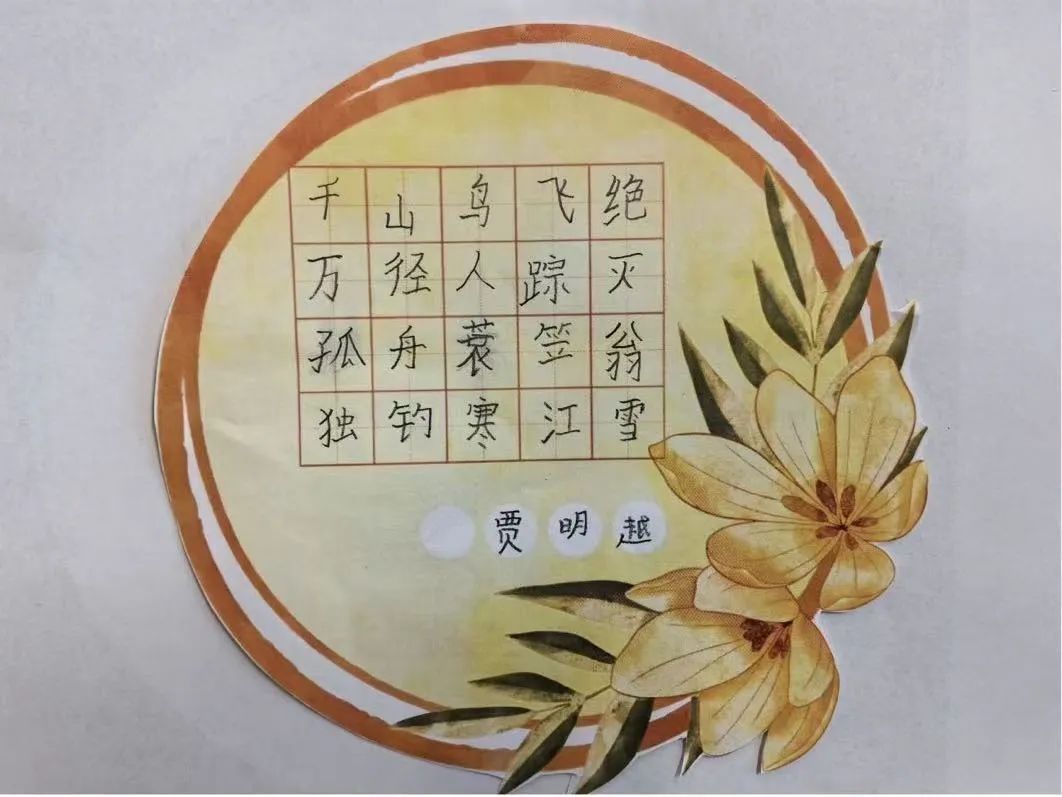 千山鸟飞绝
万径人踪灭
孤舟蓑笠翁
独钓寒江雪
贾明越